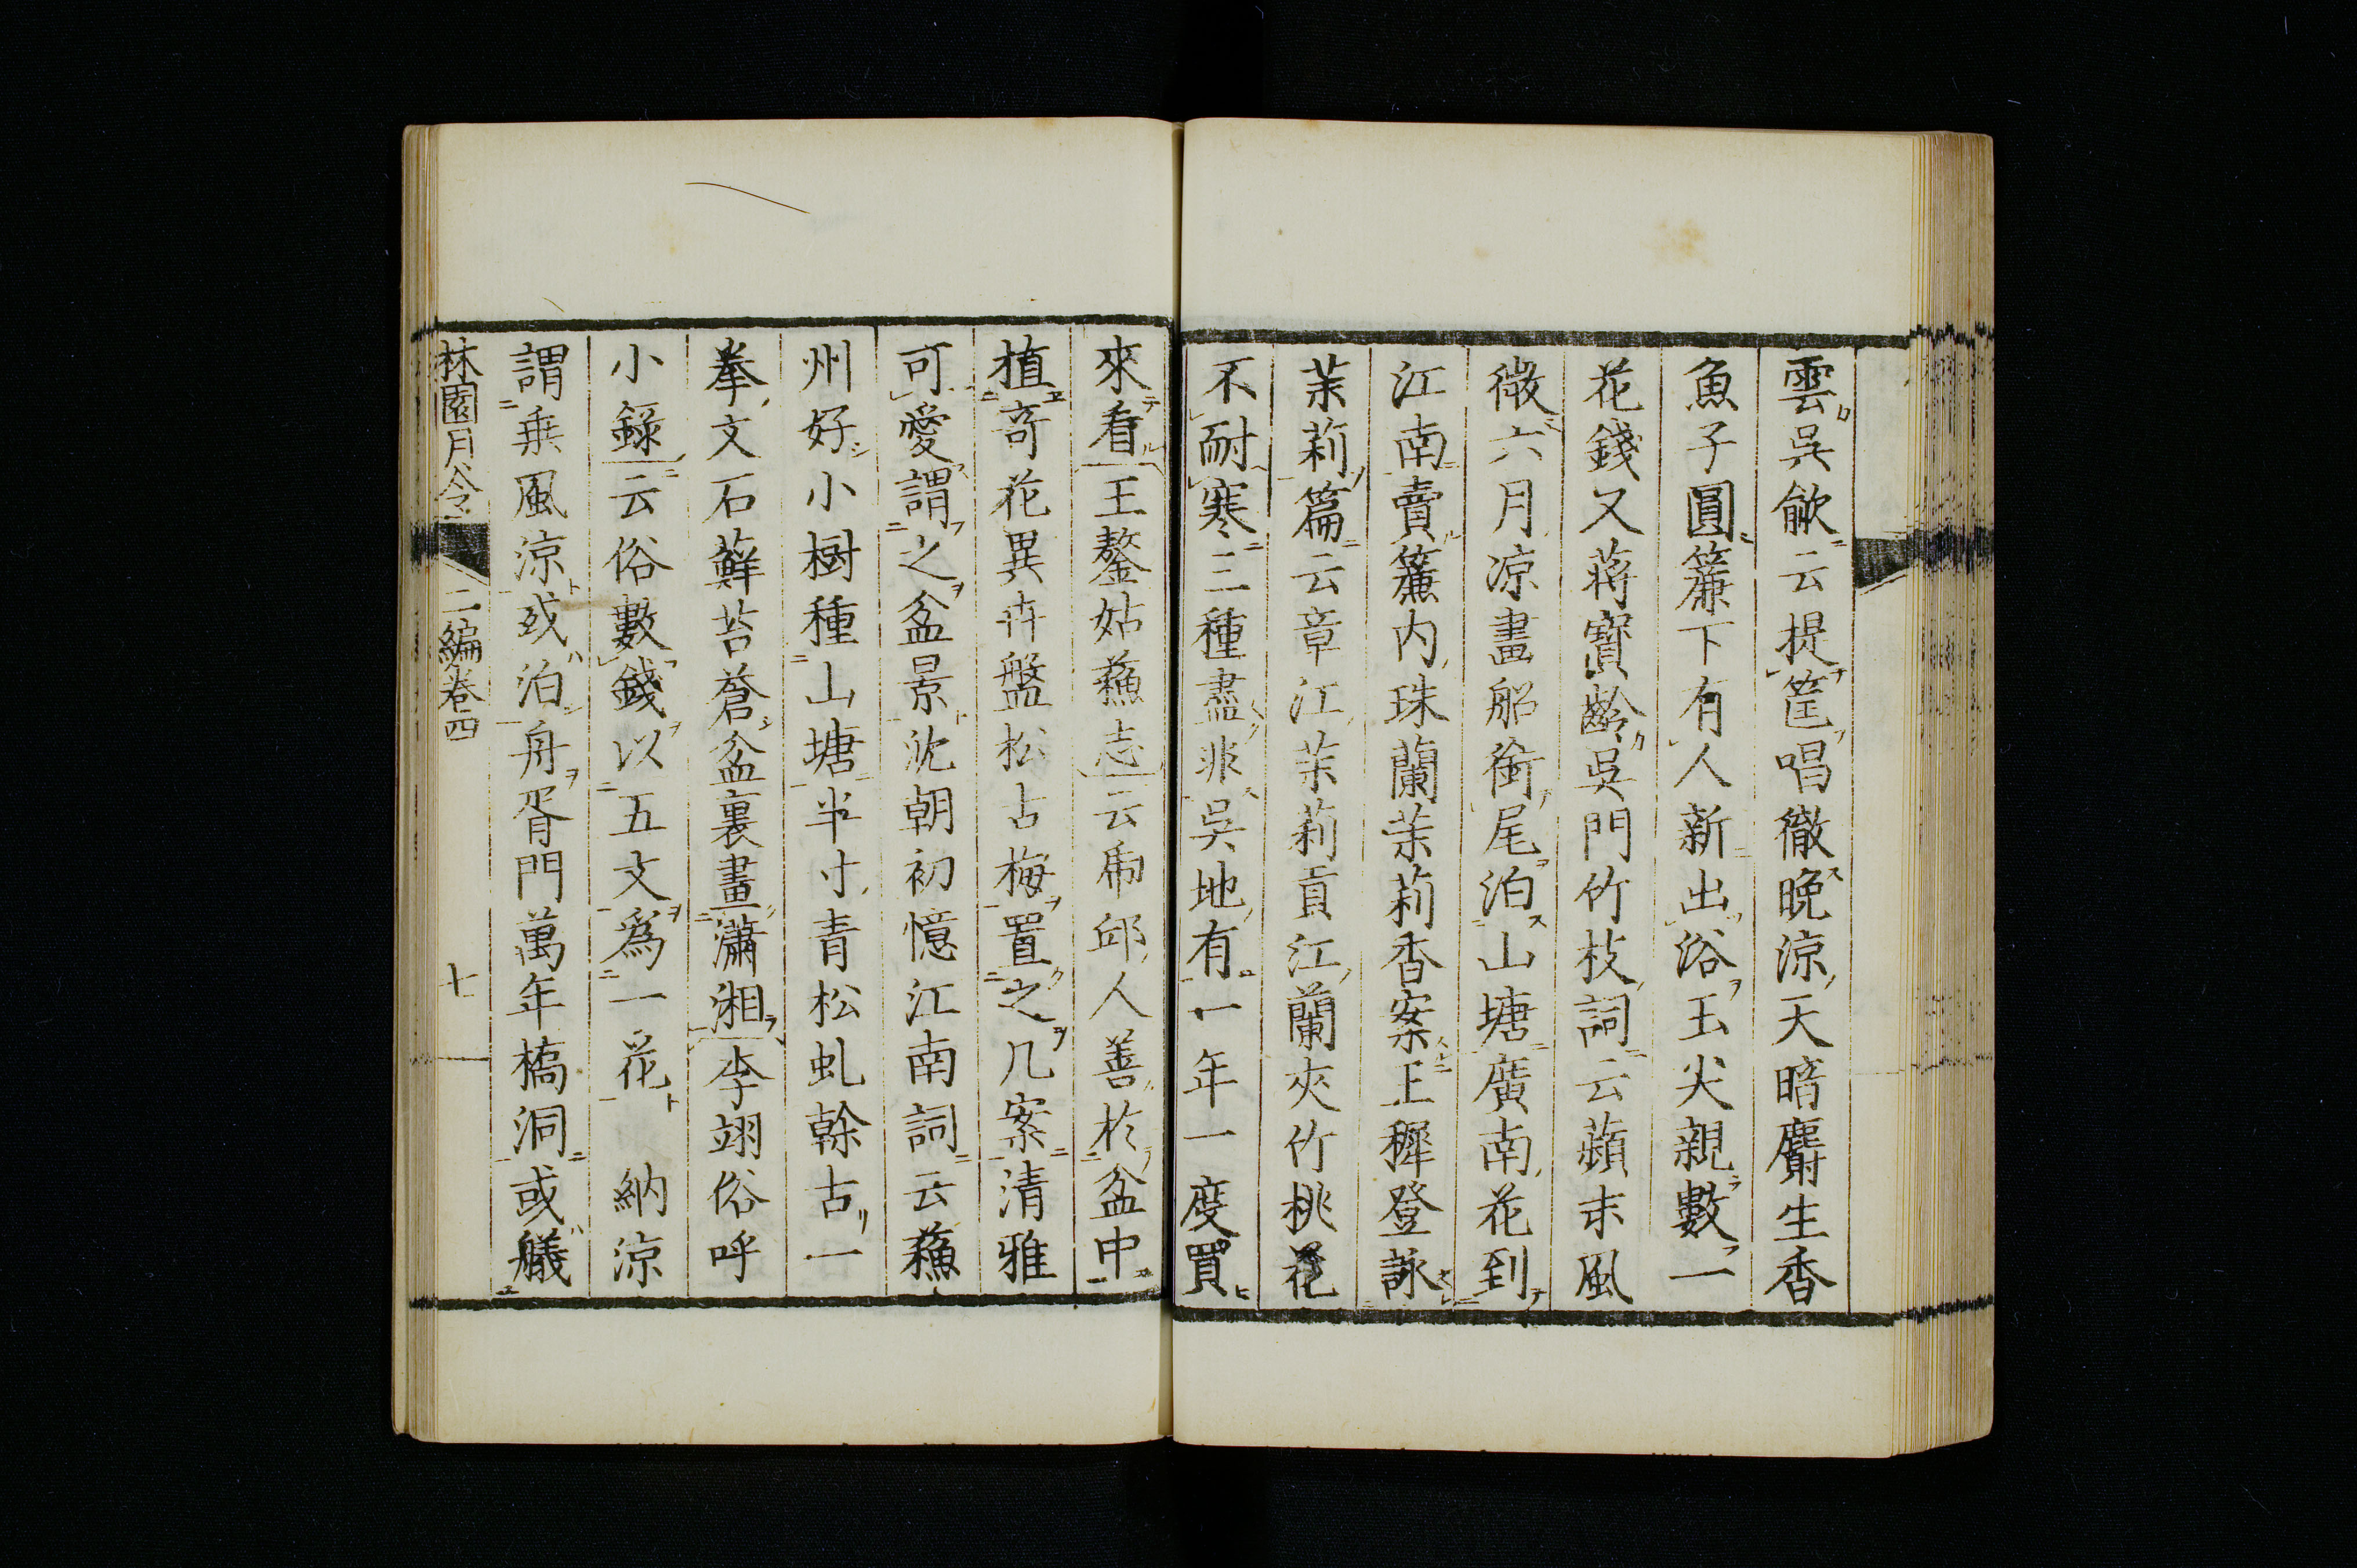 雲呉歈云提筐唱徹晚涼天暗麝生香
魚子圓簾下有人新出浴玉尖親數一
花錢又蒋寶齡呉門竹枝詞云蘋末風
微六月凉畫船銜尾泊山塘廣南花到
江南賣簾内珠蘭茉莉香案上穉登詠
茉莉篇云章江茉莉貢江蘭夾竹桃花
不耐寒三種盡非呉地有一年一度買
來看王鏊姑蘓志云虎邱人善於盆中
植奇花異卉盤松古梅置之几案清雅
可愛謂之盆景沈朝初憶江南詞云蘓
州好小樹種山塘半寸青松虬榦古一
拳文石蘚苔蒼盆裏畫瀟湘李翊俗呼
小録云俗數錢以五文爲一花　納涼
謂乗風涼或泊舟胥門萬年橋洞或艤
林園月令　二編卷四　七